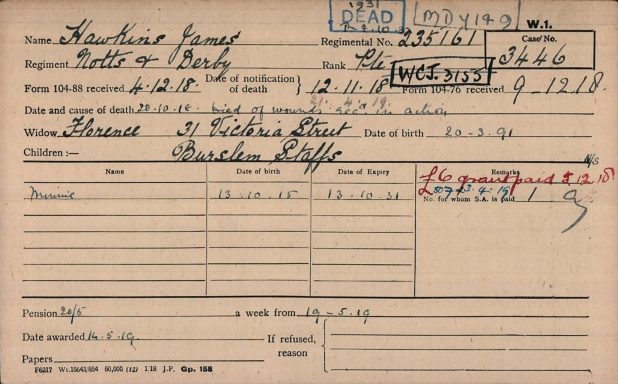 1931
DEAD
MD 4149
W.1.
Name Hawkins James
Regimental No. 235161
Case No. 3446
Regiment Notts & Derby
Rank Pte
WCJ. 3155
Form 104-88 received 4.12.18.
Date of notification of death } 12.11.18
Form 104-76 received 9-12 18.
Date and cause of death 20-10-18 Died of wounds rec'd in action
Widow Florence 31 Victoria Street Date of birth 20-3.91
Children :— Burslem Staffs
Name Date of birth Date of Expiry Remarks
£6 grant paid 5.12.18
Minnie 13.10.15 13.10.31 No. for whom S.A. is paid 1
Pension 20/5 a week from 19-5.19
Date awarded 14.5.19. If refused, reason
Papers
F6217 Wt.15643/854 50,000 (12) 1/18 J.P. Gp. 158